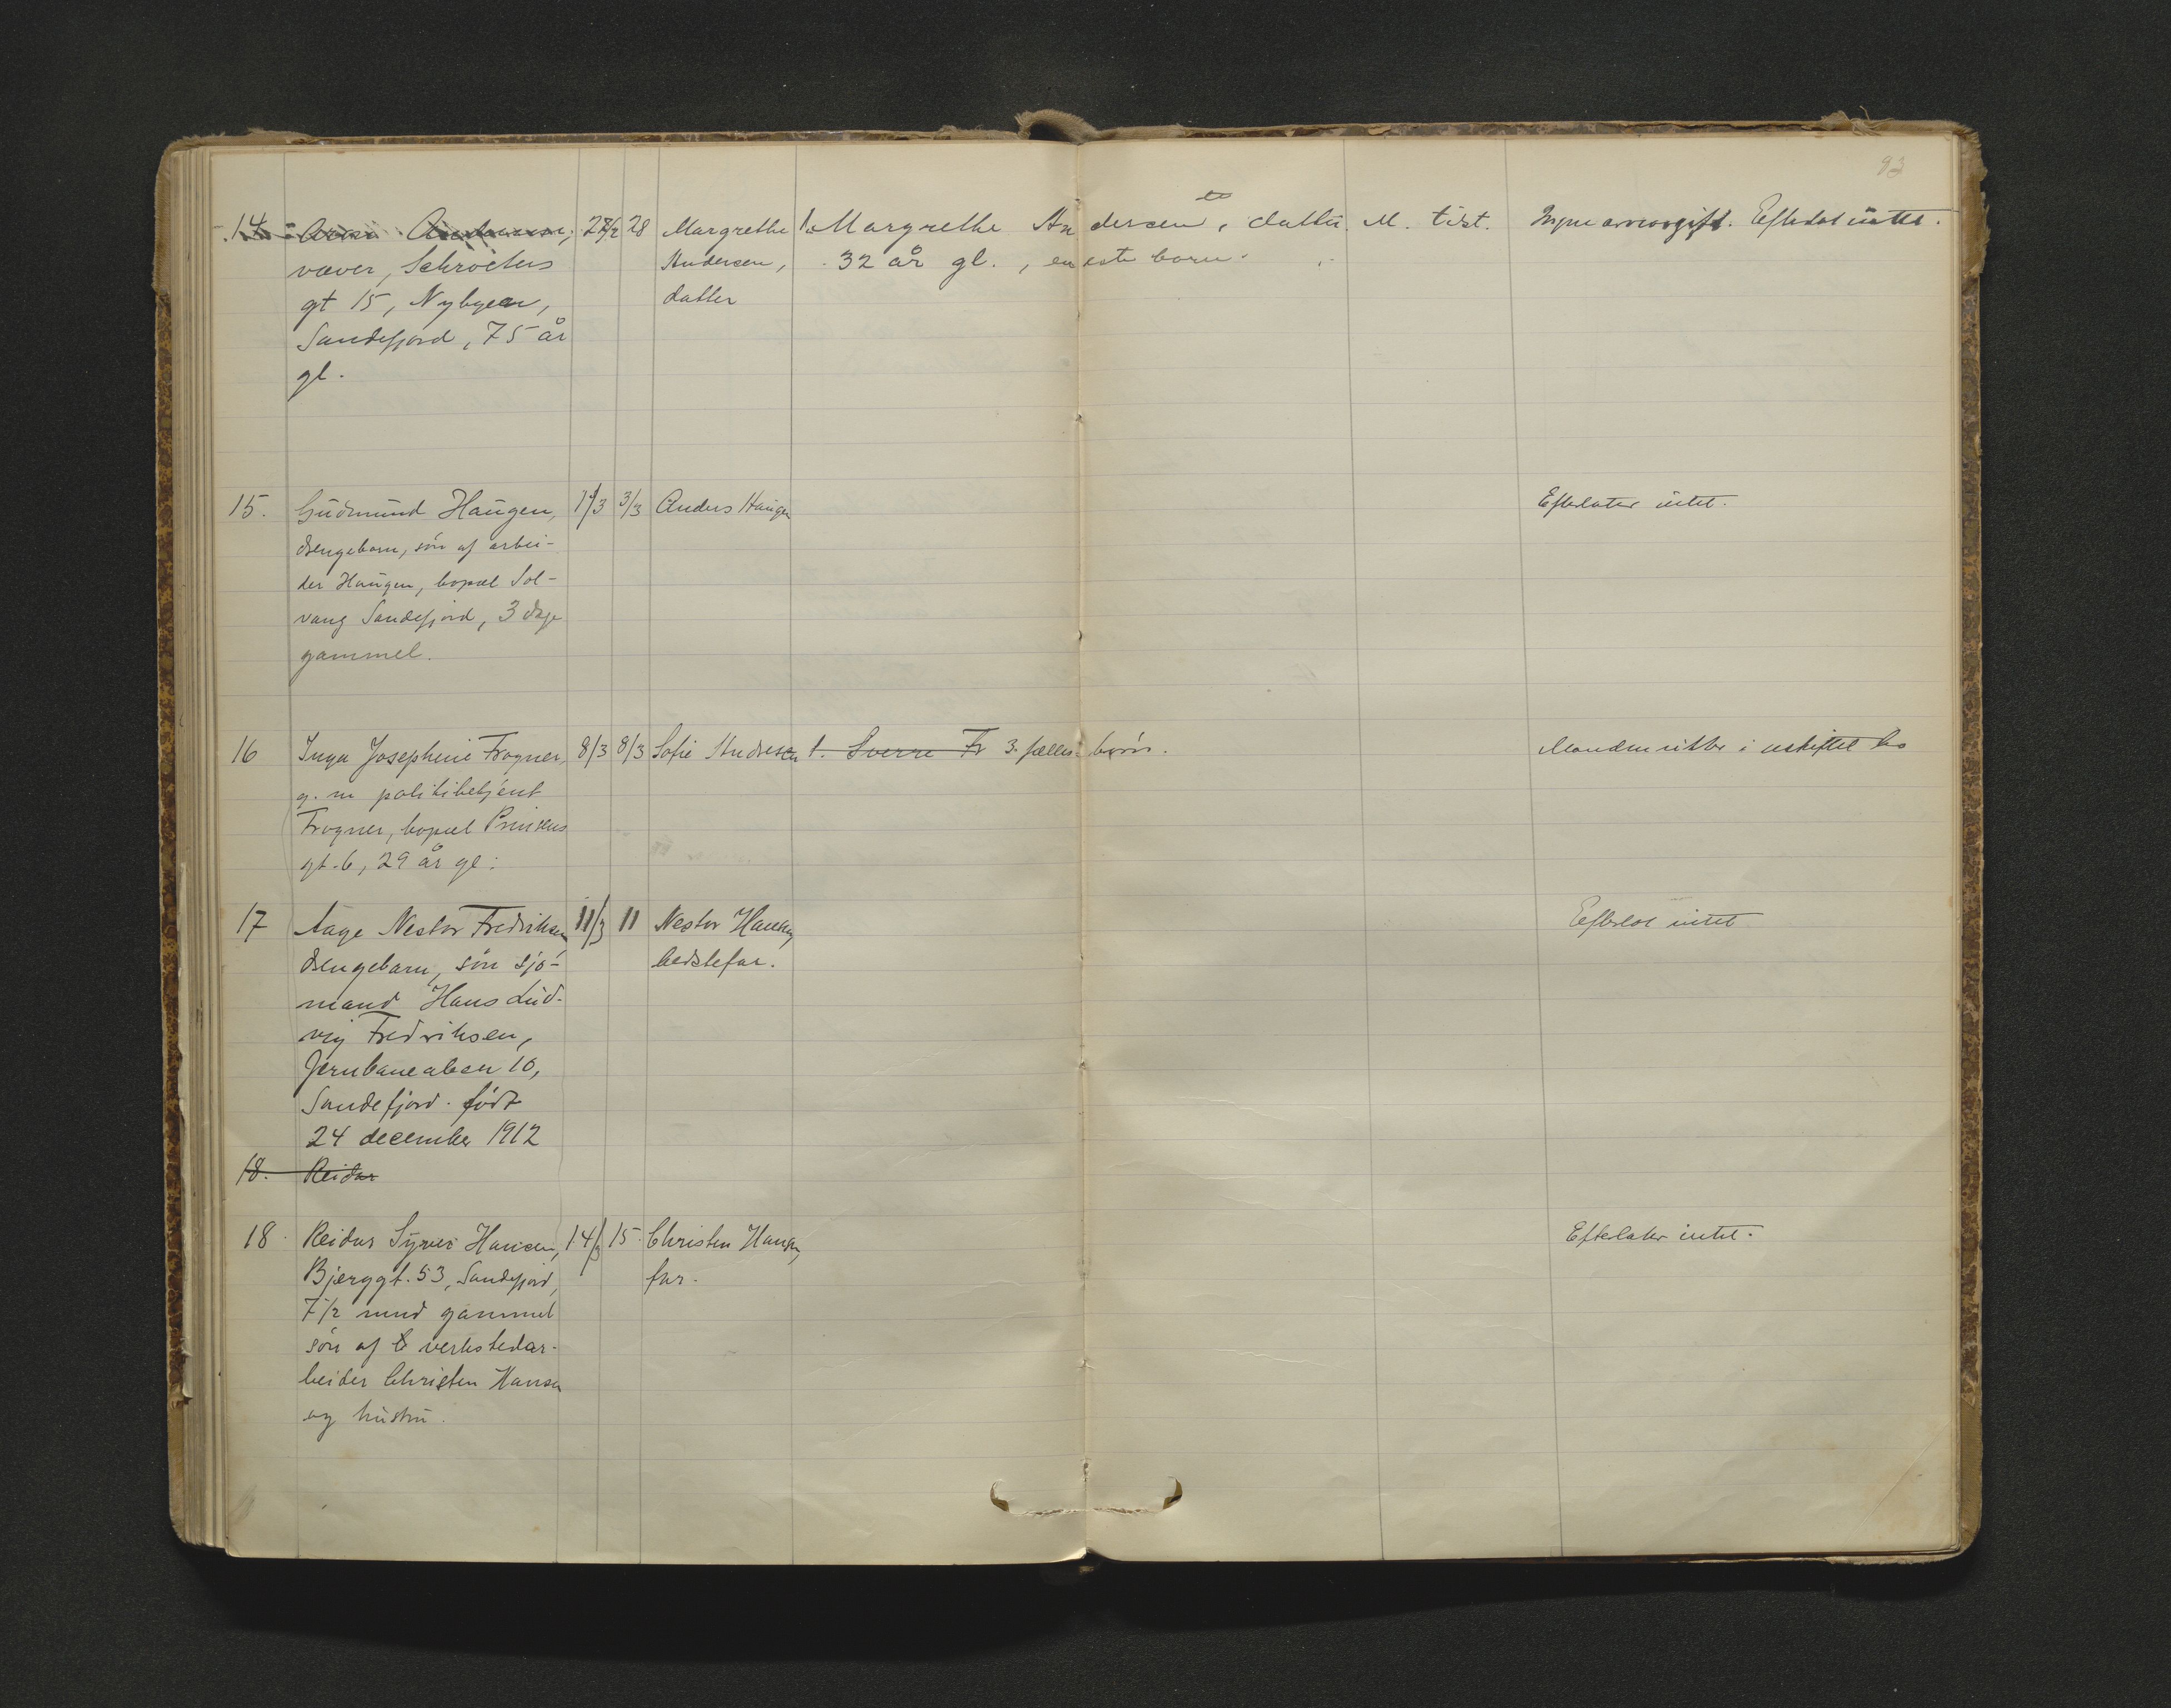 93
14 Andersen, 28/2 28 Margrethe 1. Margrethe Andersen, datter M. tilst. Ingen arveavgift. Efterlot intet.
væver, Schrøeters Andersen, 32 år gl., eneste barn.
gt 15, Nybyen, datter
Sandefjord, 75 år
gl.
15. Gudmund Haugen, 1/3 3/3 Anders Haugen Efterlater intet.
drengebarn, søn af arbei-
der Haugen, bopæl Sol-
vang Sandefjord, 3 dage
gammel.
16 Inga Josephine Frogner, 8/3 8/3 Sofie Andresen 1. Sverre Fr 3 fælles børn. Manden sitter i uskiftet bo
g. m politibetjent
Frogner, bopæl Prinsens
gt. 6, 29 år gl.
17 Aage Nestor Fredriksen 11/3 11 Nestor Hansen, Efterlot intet
drengebarn, søn sjø- bedstefar.
mand Hans Lud-
vig Fredriksen,
Jernbanealeen 10,
Sandefjord. født
24 december 1912
18. Reidar
18. Reidar Hansen, 14/3 15. Christen Hansen, Efterlater intet.
Bjerggt. 53, Sandefjord, far.
7 1/2 mnd gammel
søn af verkstedar-
beider Christen Hansen
og hustru.